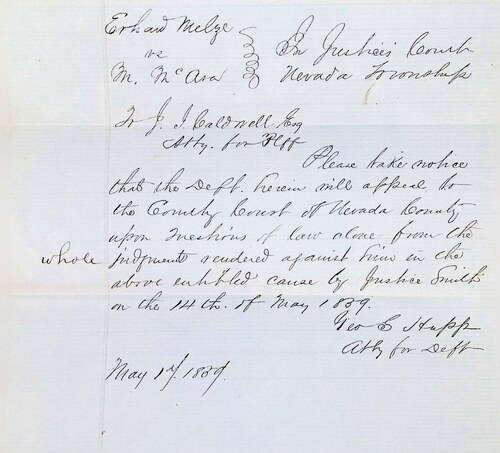 Erhard Melze
vs
M. McAra
In Justices Court
Nevada Township
To J. I. Caldwell Esq
Atty. for Plff
Please take notice
that the Deft. herein will appeal to
the County Court of Nevada County
upon Questions of law alone from the
whole judgment rendered against him in the
above entitled cause by Justice Smith
on the 14th. of May 1859.
Geo S Hupp
Atty for Deft
May 1859.